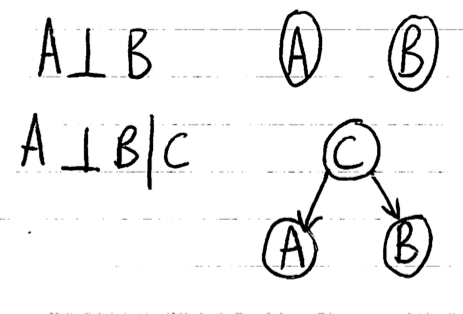 A ⊥ B A B
A ⊥ B|C C
A B